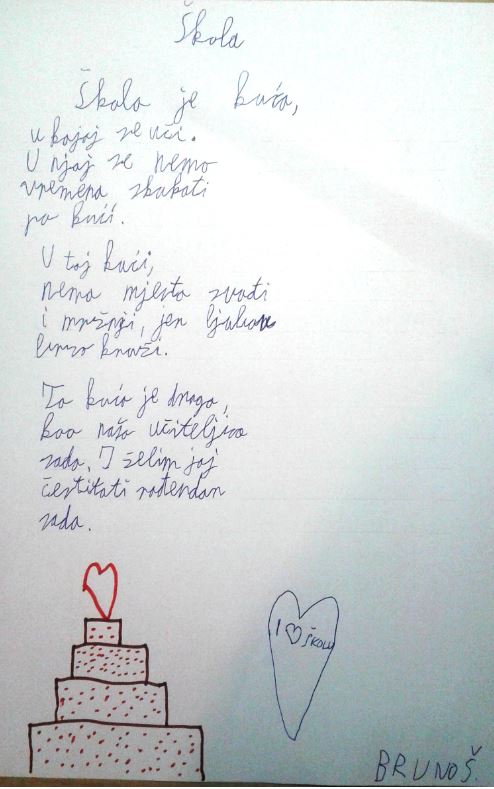 Škola
Škola je kuća,
u kojoj se uči.
U njoj se nemo
vremena skakati
po kući.
U toj kući,
nema mjesta svađi
i mržnji, jer ljubav
brzo kruži.
Ta kuća je draga,
kao naša učiteljica
sada. I želim joj
čestitati rođendan
sada.
I ♡ ŠKOLU
BRUNO Š.